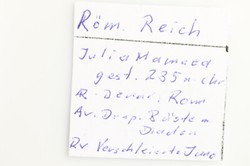 Röm. Reich
Julia Mamaea
gest. 235 n Chr
AR-Denar, Rom
Av. Drap. Büste m.
Diadem
Rv Verschleierte Juno